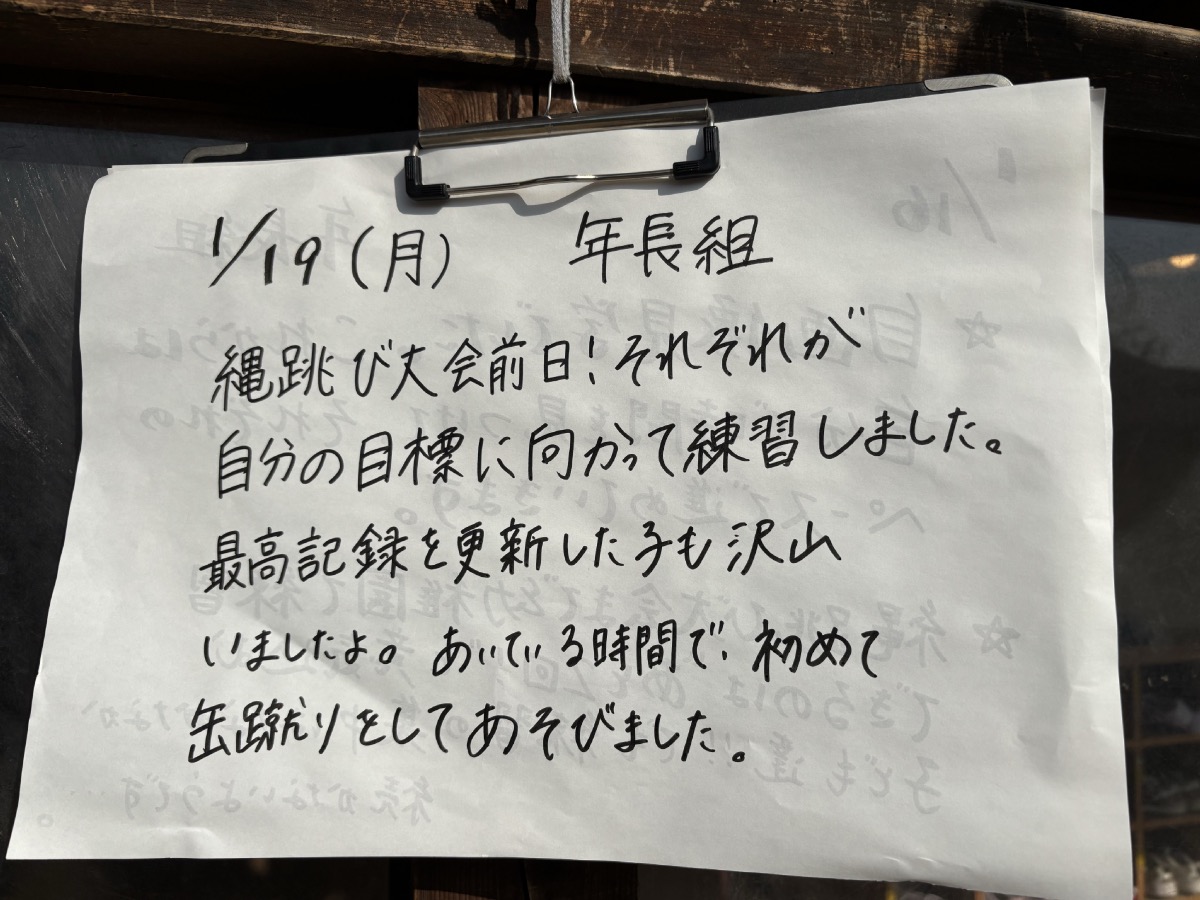 1/19（月）　年長組
縄跳び大会前日！それぞれが
自分の目標に向かって練習しました。
最高記録を更新した子も沢山
いましたよ。あいている時間で、初めて
缶蹴りをしてあそびました。